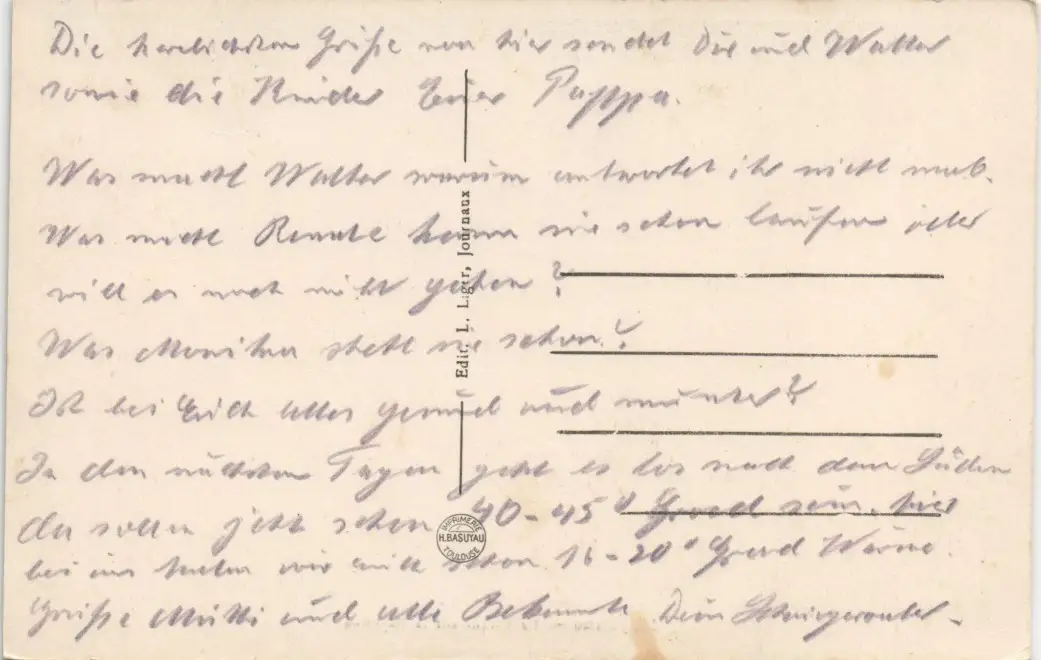 Die herzlichsten Grüße von hier sendet Dir und Walter
sowie die Kinder Euer Pappa.
Was macht Walter warum antwortet ihr nicht mal.
Was macht Renate kann sie schon laufen oder
will es noch nicht gehen?
Was Monika steht sie schon?
Ist bei Euch alles gesund und munter?
In den nächsten Tagen geht es los nach dem Süden
da sollen jetzt schon 40-45° Grad sein, hier
bei uns haben wir auch schon 16-20° Grad Wärme.
Grüße Mutti und alle Bekannte Dein Schwiegervater.
Edit. L. Liger, Journaux
IMPRIMERIE
H. BASUYAU
TOULOUSE